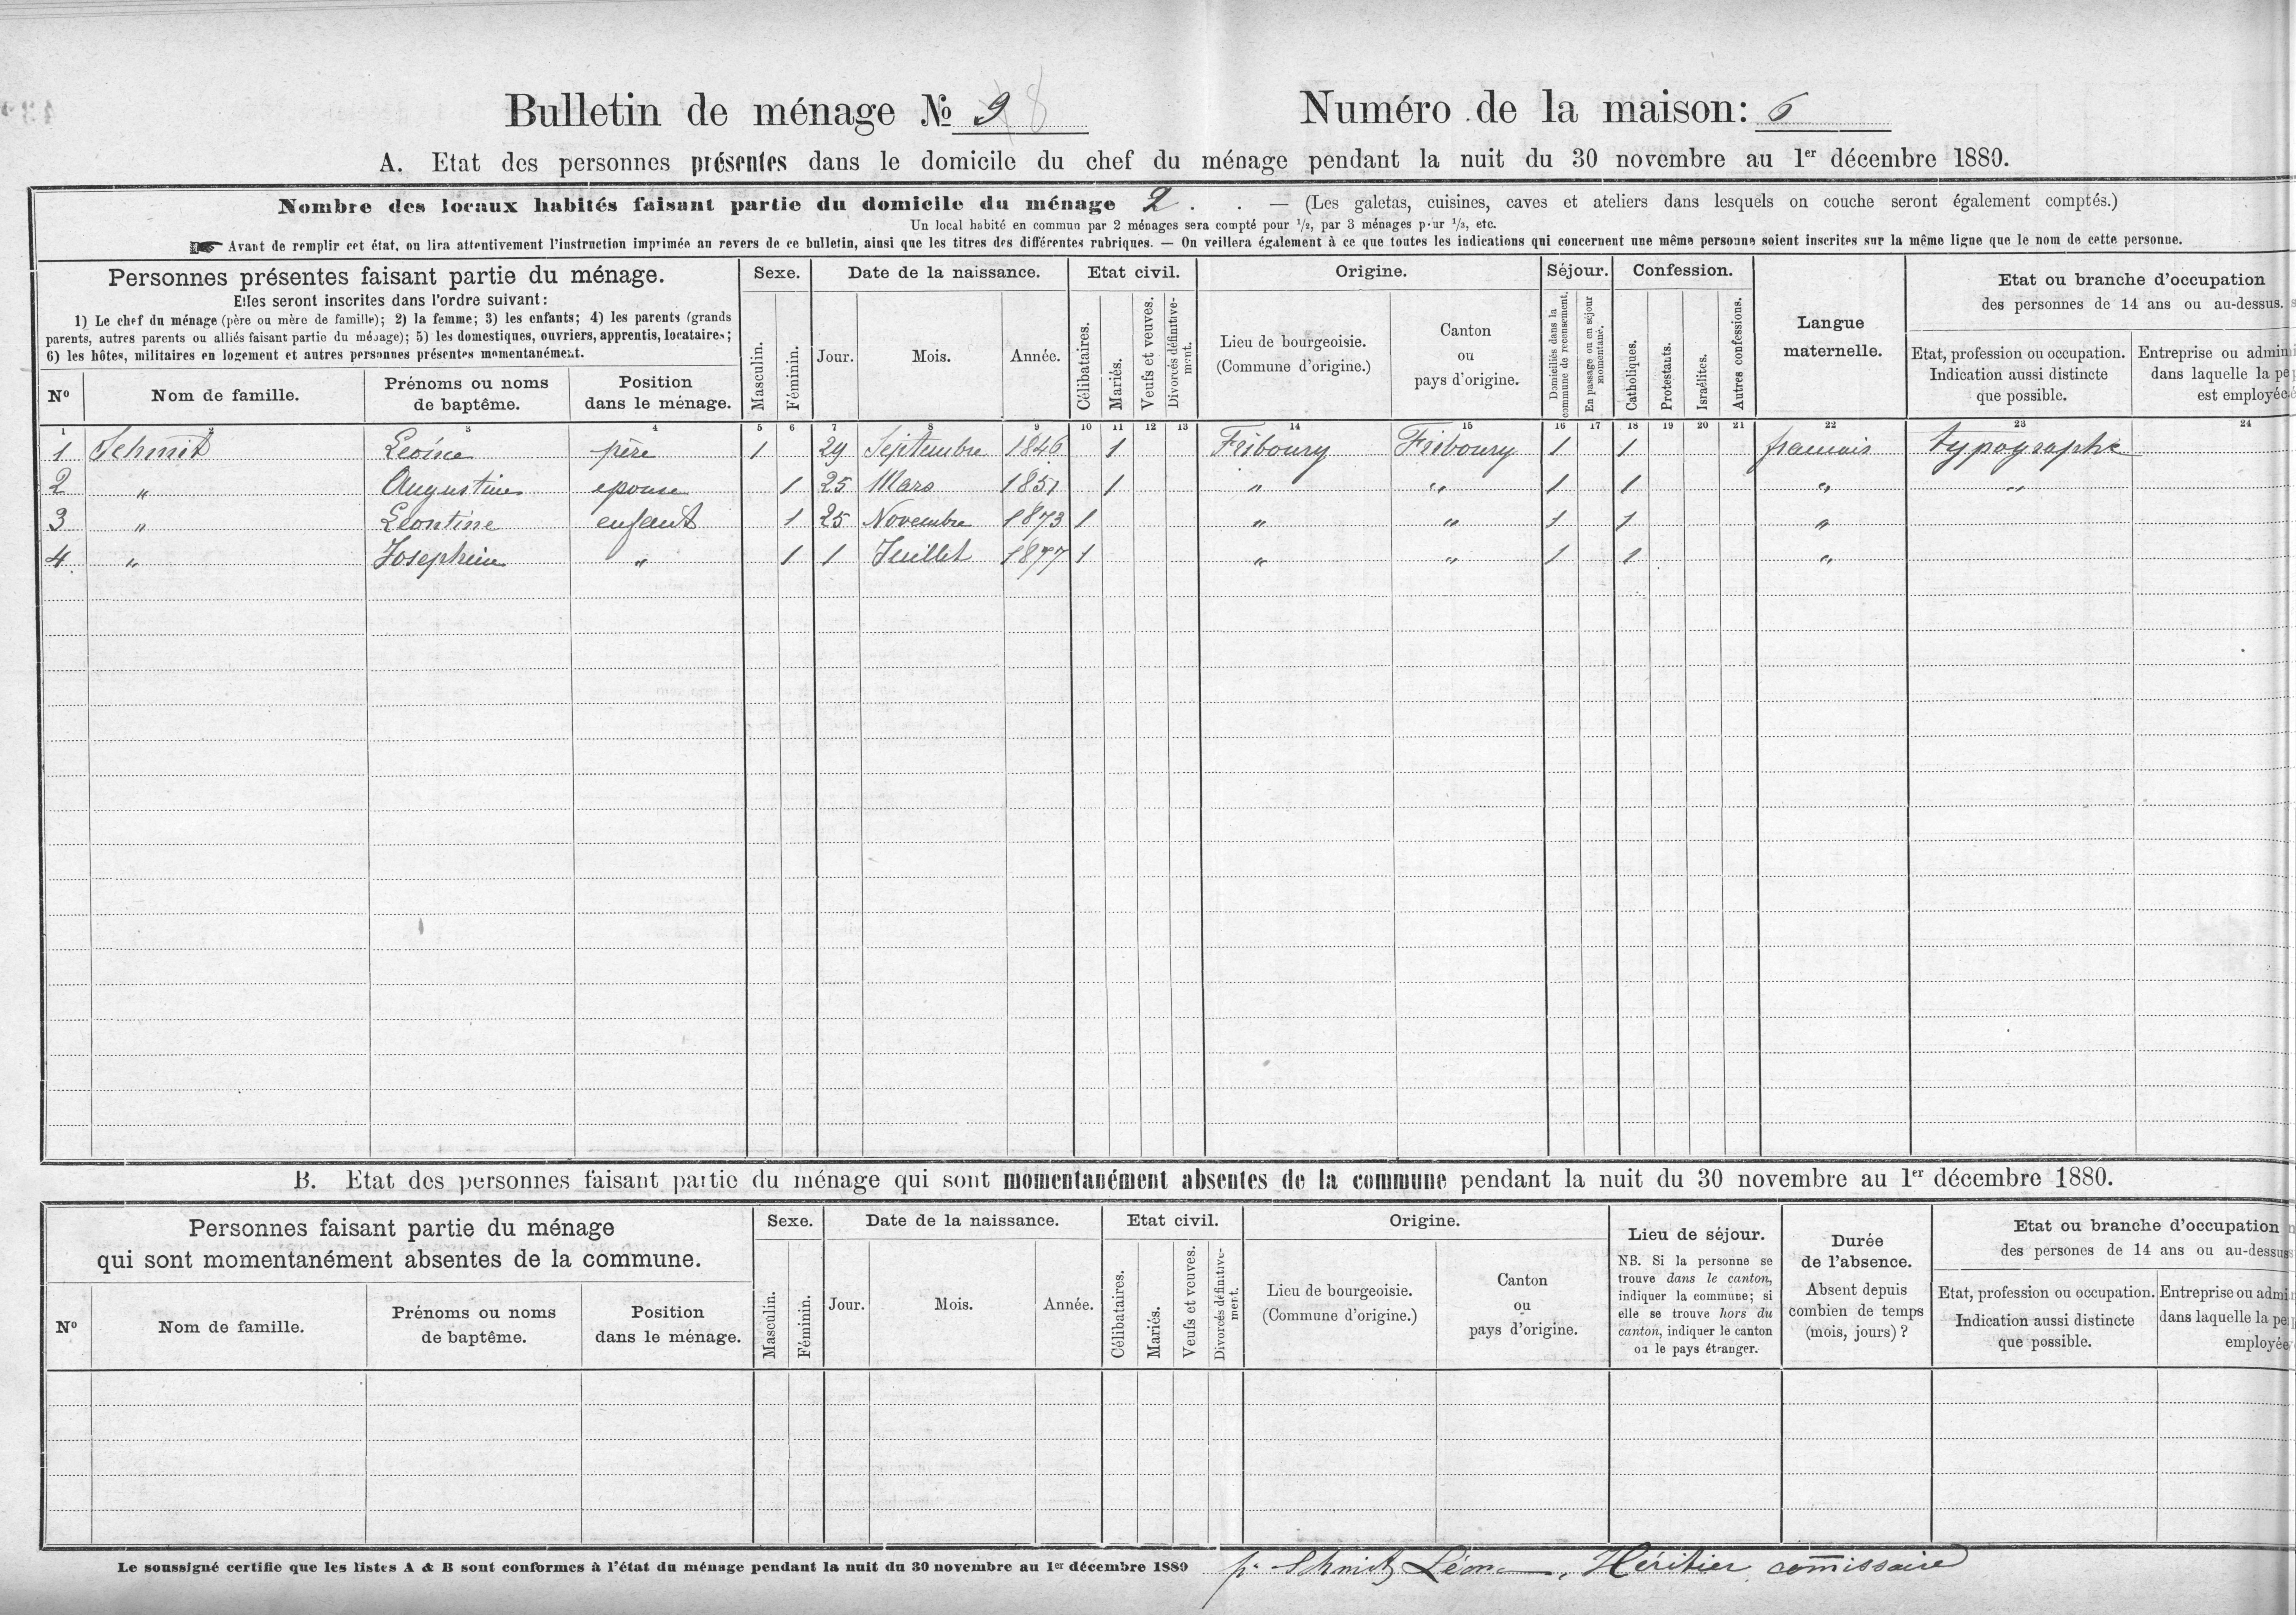 Bulletin de ménage № 9 8
Numéro de la maison: 6
A. Etat des personnes présentes dans le domicile du chef du ménage pendant la nuit du 30 novembre au 1er décembre 1880.
Nombre des locaux habités faisant partie du domicile du ménage 2 . . — (Les galetas, cuisines, caves et ateliers dans lesquels on couche seront également comptés.)
Un local habité en commun par 2 ménages sera compté pour 1/2, par 3 ménages pour 1/3, etc.
☛ Avant de remplir cet état, on lira attentivement l'instruction imprimée au revers de ce bulletin, ainsi que les titres des différentes rubriques. — On veillera également à ce que toutes les indications qui concernent une même personne soient inscrites sur la même ligne que le nom de cette personne.
Personnes présentes faisant partie du ménage.
Elles seront inscrites dans l'ordre suivant:
1) Le chef du ménage (père ou mère de famille); 2) la femme; 3) les enfants; 4) les parents (grands
parents, autres parents ou alliés faisant partie du ménage); 5) les domestiques, ouvriers, apprentis, locataires;
6) les hôtes, militaires en logement et autres personnes présentes momentanément.
Nº Nom de famille. Prénoms ou noms de baptême. Position dans le ménage.
Sexe. Masculin. Féminin.
Date de la naissance. Jour. Mois. Année.
Etat civil. Célibataires. Mariés. Veufs et veuves. Divorcés définitive-ment.
Origine. Lieu de bourgeoisie. (Commune d'origine.) Canton ou pays d'origine.
Séjour. Domiciliés dans la commune de recensement. En passage ou en séjour momentané.
Confession. Catholiques. Protestants. Israélites. Autres confessions.
Langue maternelle.
Etat ou branche d'occupation
des personnes de 14 ans ou au-dessus.
Etat, profession ou occupation. Indication aussi distincte que possible.
Entreprise ou admin
dans laquelle la pe
est employée
1 2 3 4 5 6 7 8 9 10 11 12 13 14 15 16 17 18 19 20 21 22 23 24
1 Schmit Léonce père 1 29 Septembre 1846 1 Fribourg Fribourg 1 1 français typographe
2 " Augustine epouse 1 25 Mars 1851 1 " " 1 1 " "
3 " Léontine enfant 1 25 Novembre 1873 1 " " 1 1 "
4 " Josephine " 1 1 Juillet 1877 1 " " 1 1 "
B. Etat des personnes faisant partie du ménage qui sont momentanément absentes de la commune pendant la nuit du 30 novembre au 1er décembre 1880.
Personnes faisant partie du ménage
qui sont momentanément absentes de la commune.
Nº Nom de famille. Prénoms ou noms de baptême. Position dans le ménage.
Sexe. Masculin. Féminin.
Date de la naissance. Jour. Mois. Année.
Etat civil. Célibataires. Mariés. Veufs et veuves. Divorcés définitive-ment.
Origine. Lieu de bourgeoisie. (Commune d'origine.) Canton ou pays d'origine.
Lieu de séjour.
NB. Si la personne se
trouve dans le canton,
indiquer la commune; si
elle se trouve hors du
canton, indiquer le canton
ou le pays étranger.
Durée
de l'absence.
Absent depuis
combien de temps
(mois, jours) ?
Etat ou branche d'occupation
des persones de 14 ans ou au-dessus
Etat, profession ou occupation. Indication aussi distincte que possible.
Entreprise ou admi
dans laquelle la pe
employée
Le soussigné certifie que les listes A & B sont conformes à l'état du ménage pendant la nuit du 30 novembre au 1er décembre 1880 p. Schmidt Léonce, Héritier, commissaire